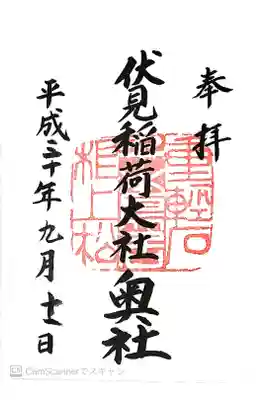 奉拝
伏見稲荷大社奥社
平成三十年九月十一日
CamScannerでスキャン